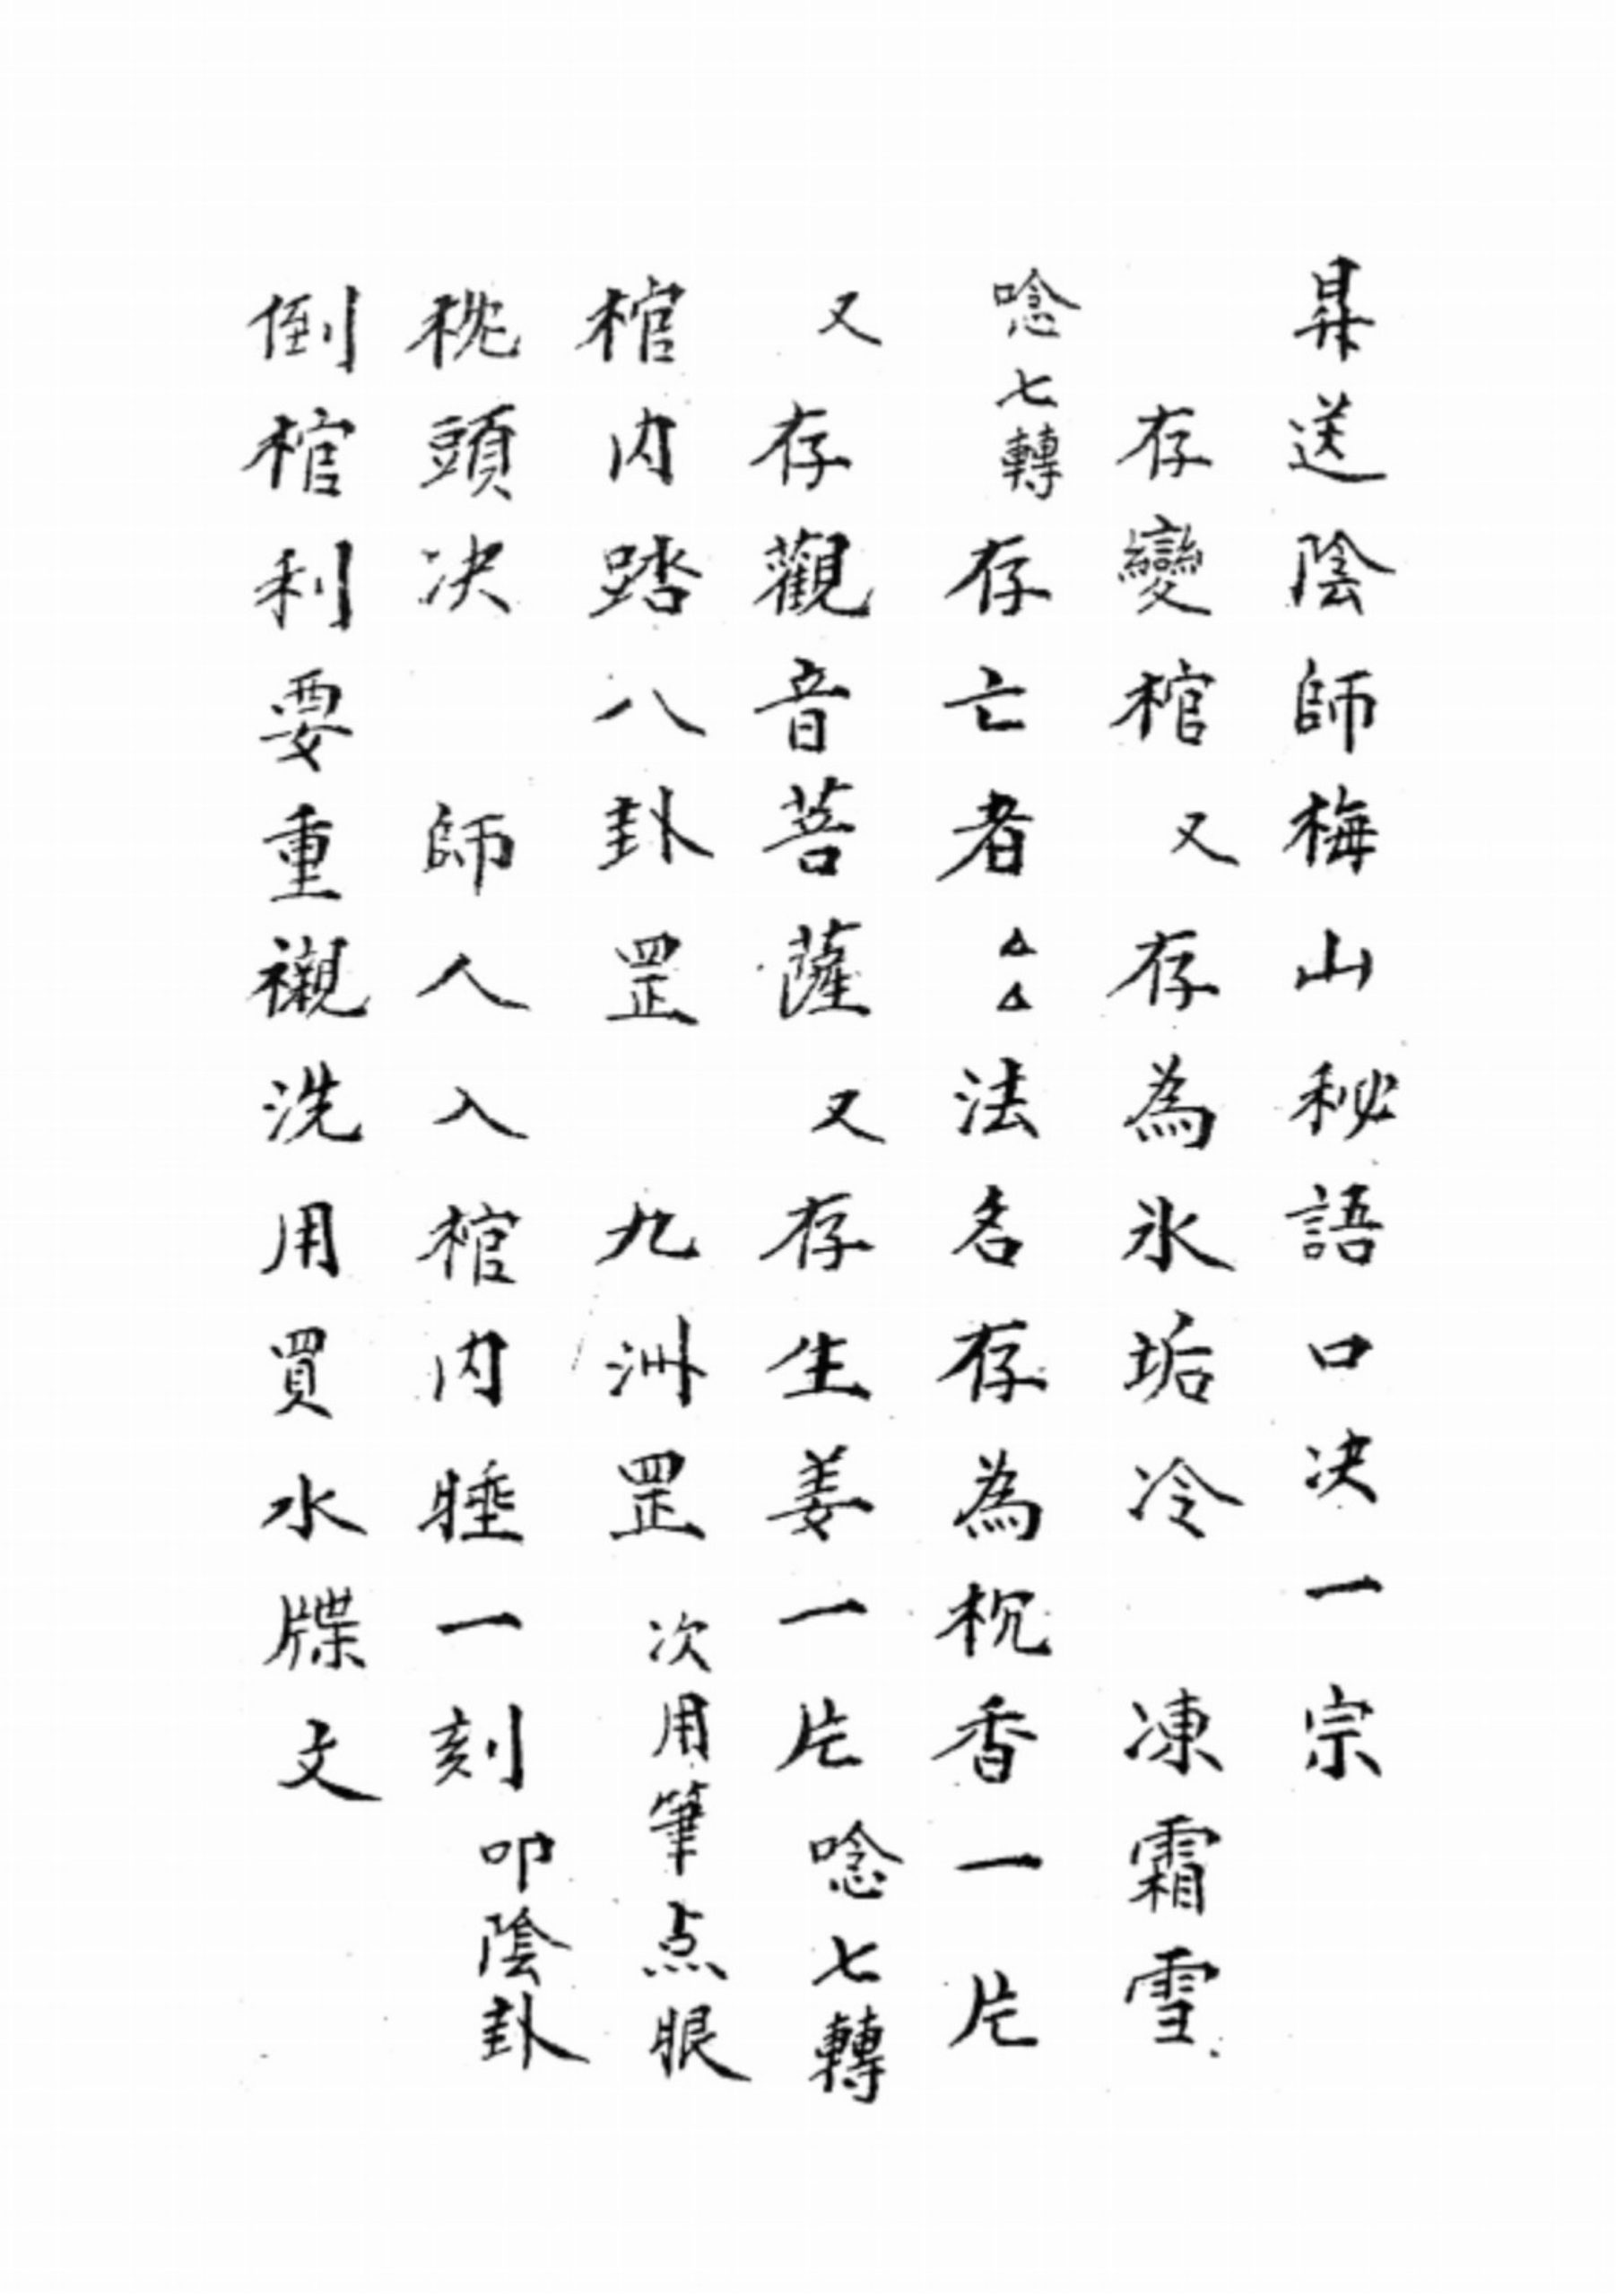 昇送陰師梅山秘語口决一宗
存變棺又存為氷垢冷　凍霜雪
唸七轉存亡者△△法名存為枕香一片
又存觀音菩薩又存生姜一片唸七轉
棺内踏八卦罡　九洲罡次用筆点眼
枕頭决　師人入棺内睡一刻叩陰卦
倒棺利要重襯洗用買水牒文